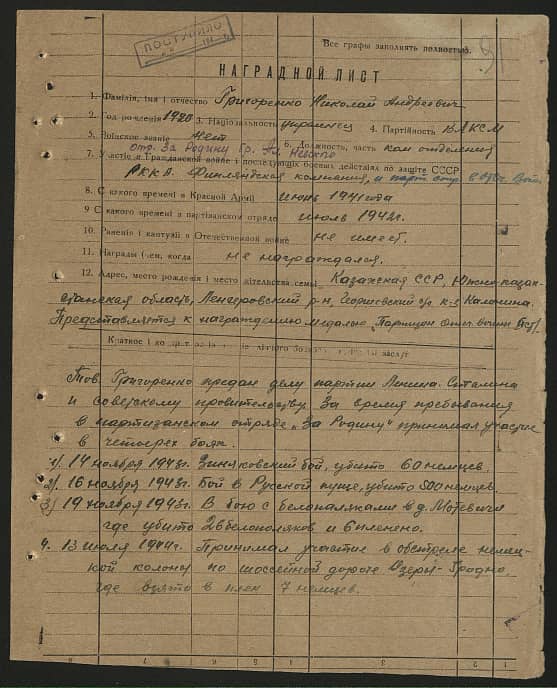 ПОСТУПИЛО
Все графы заполнять полностью.
НАГРАДНОЙ ЛИСТ
1. Фамилия, имя и отчество Григоренко Николай Андреевич
2. Год рождения 1920 3. Национальность украинец 4. Партийность ВЛКСМ
5. Воинское звание нет 6. Должность, часть ком. отделения
отр. За Родину Гр. Ал. Невского
7. Участие в Гражданской войне и последующих боевых действиях по защите СССР
РККА. Финляндская компания, и парт. отр. в отеч. войн.
8. С какого времени в Красной Армии июнь 1941 года
9. С какого времени в партизанском отряде июль 1942г.
10. Ранения и контузии в Отечественной войне не имеет.
11. Награды (чем, когда не награждался.
12. Адрес, место рождения и место жительства семьи Казахская ССР, Южно-казах-
станская область, Ленгеровский р-н, Георгиевский с/с к-з Калинина.
Представляется к награждению медалью „Партизан Отеч. войны II ст/.
Краткое заслуг
Тов. Григоренко предан делу партии Ленина-Сталина
и советскому провительству. За время пребывания
в партизанском отряде „За Родину" принимал участие
в четырех боях.
1) 14 ноября 1943г. Зиняковский бой, убито 60 немцев.
2) 16 ноября 1943г. Бой в Русской пуще, убито 800 немцев.
3) 19 ноября 1943г. В бою с белополяками в д. Мотевичи
где убито 26 белополяков и 6 пленено.
4. 13 июля 1944г. Принимал участие в обстреле немец-
кой колоны по шоссейной дороге Озеры-Гродно,
где взято в плен 7 немцев.